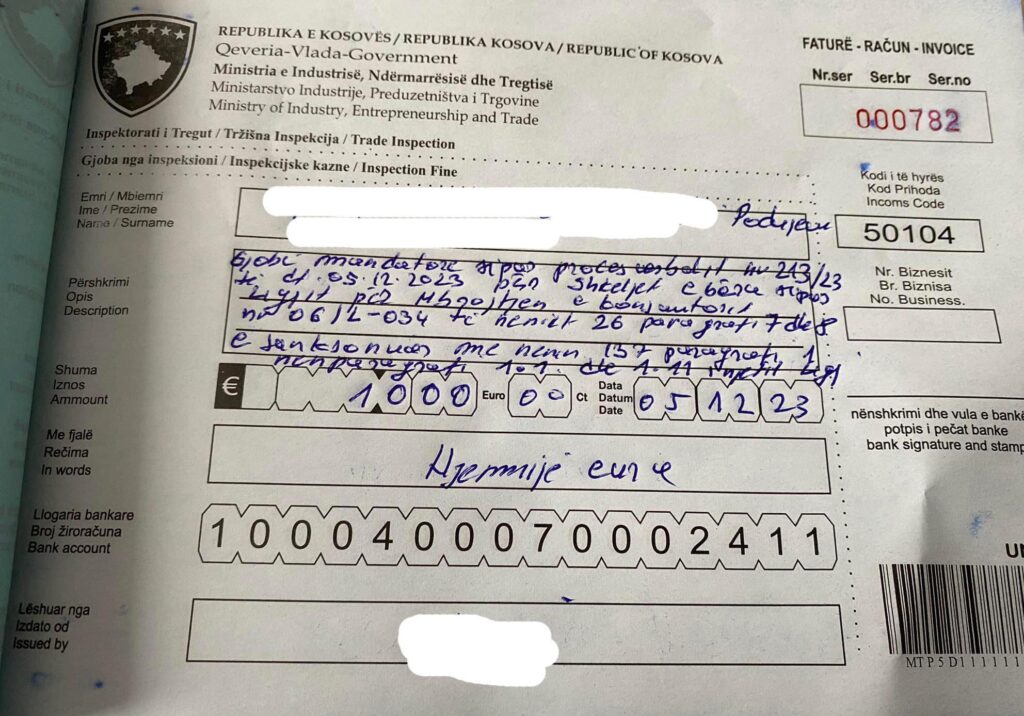 REPUBLIKA E KOSOVËS / REPUBLIKA KOSOVA / REPUBLIC OF KOSOVA
Qeveria-Vlada-Government
Ministria e Industrisë, Ndërmarrësisë dhe Tregtisë
Ministarstvo Industrije, Preduzetništva i Trgovine
Ministry of Industry, Entrepreneurship and Trade
Inspektorati i Tregut / Tržišna Inspekcija / Trade Inspection
Gjoba nga inspeksioni / Inspekcijske kazne / Inspection Fine
FATURË - RAČUN - INVOICE
Nr.ser Ser.br Ser.no
000782
Kodi i të hyrës
Kod Prihoda
Incoms Code
50104
Nr. Biznesit
Br. Biznisa
No. Business.
Emri / Mbiemri
Ime / Prezime
Name / Surname
Podujevë
Përshkrimi
Opis
Description
Gjobë mandatore sipas procesverbalit nr 213/23
të dt. 05.12.2023 për shkeljet e bëra sipas
Ligjit për Mbrojtjen e konsumatorit
nr 06/L-034 të nenit 26 paragrafi 7 dhe 8
e sanksionuar me nenin 137 paragrafi 1
nënparagrafi 1.1. dhe 1.11 i njëjtit ligj
Shuma
Iznos
Ammount
€ 1000 Euro 00 Ct
Data
Datum
Date
05 12 23
nënshkrimi dhe vula e bankë
potpis i pečat banke
bank signature and stamp
Me fjalë
Rečima
In words
Njëmijë euro
Llogaria bankare
Broj žiroračuna
Bank account
1000400070002411
Lëshuar nga
Izdato od
Issued by
MTP5D111111